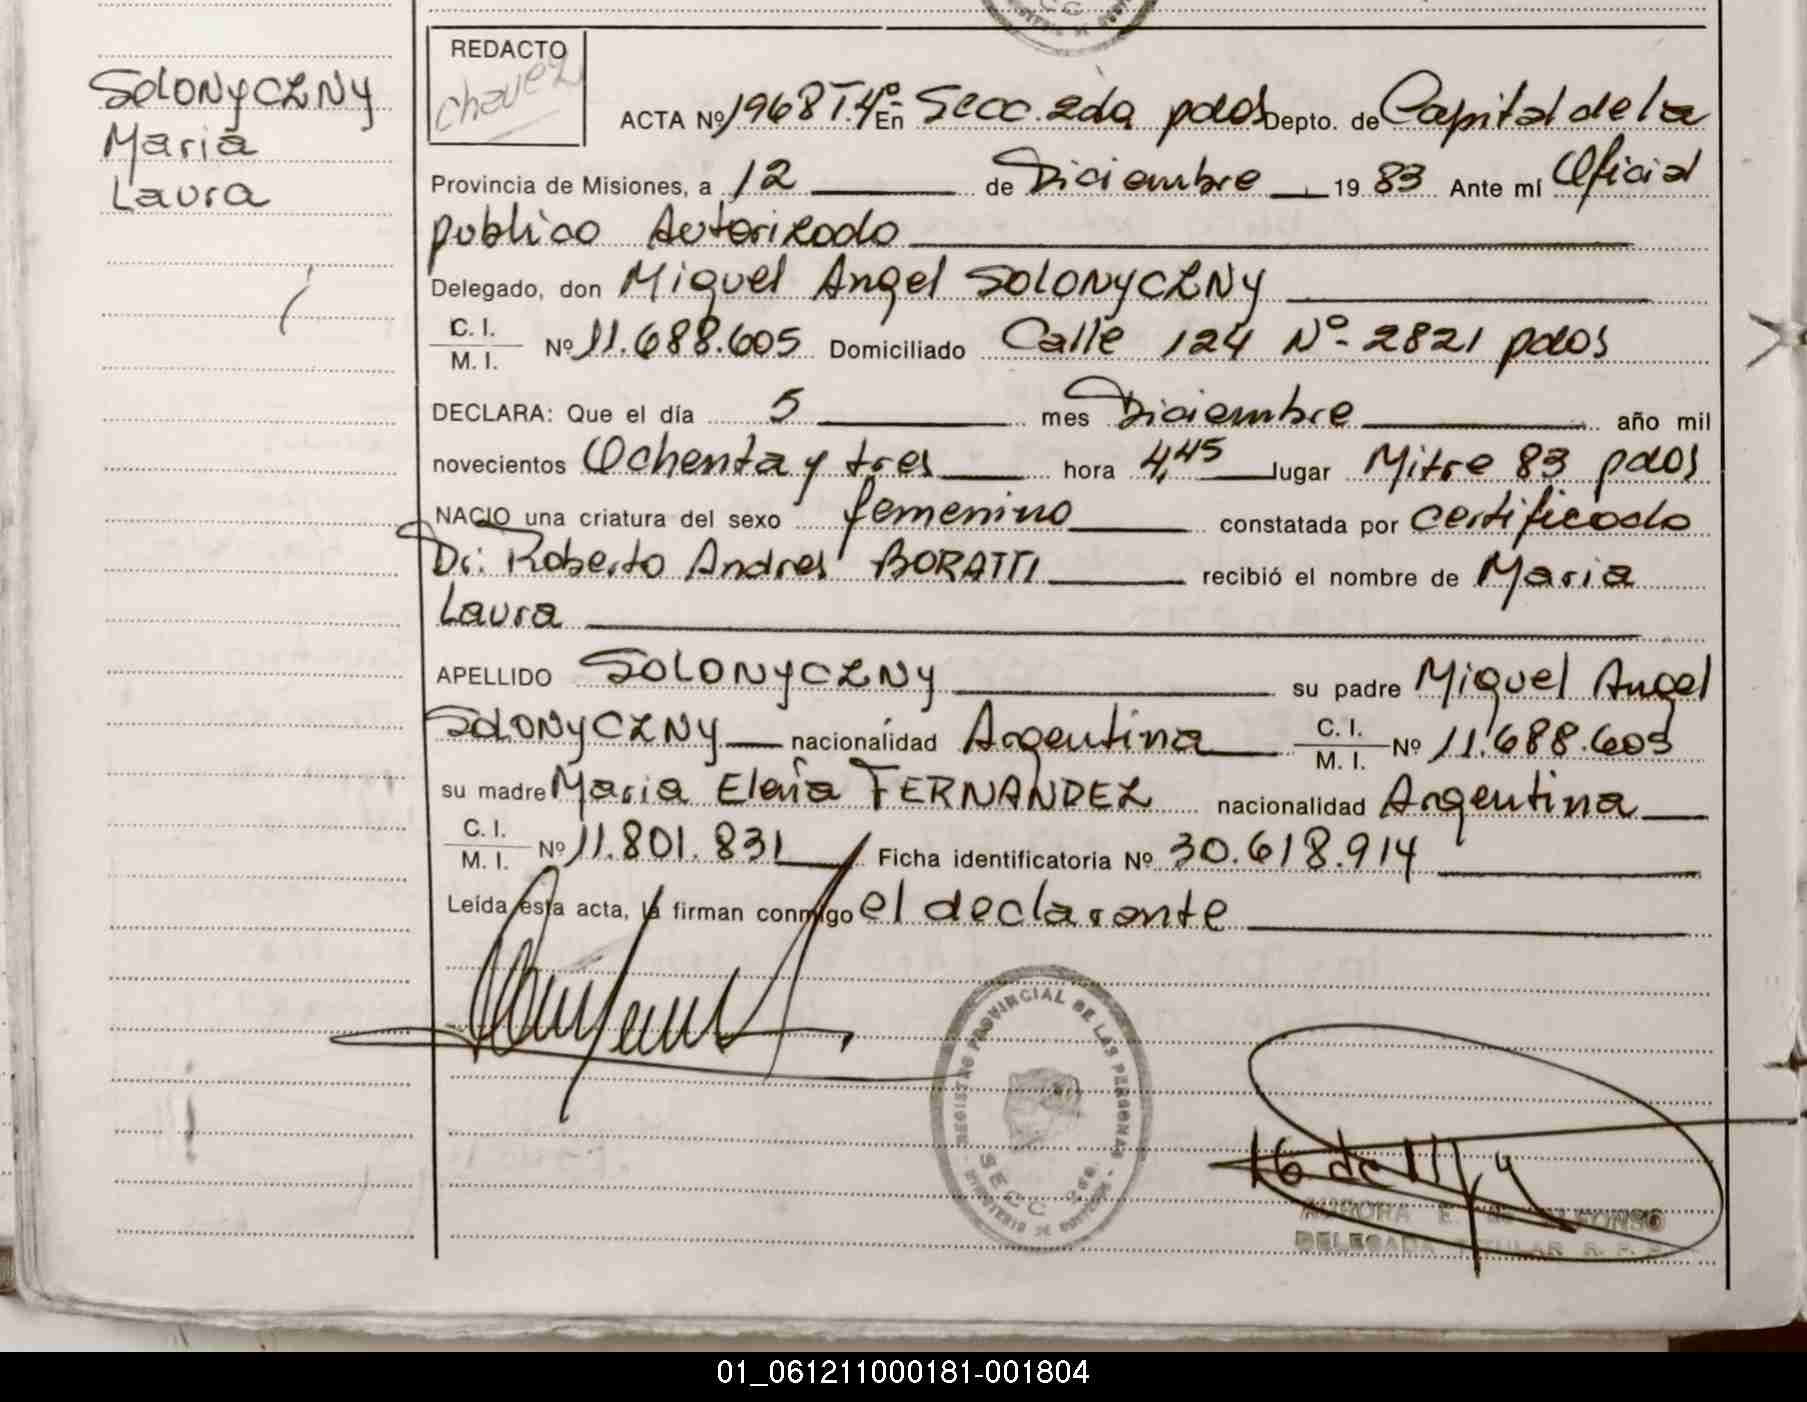 SOLONYCZNY
Maria
Laura
REDACTO
Chavez
ACTA Nº 1968 T.4º En Secc. 2da pdas Depto. de Capital de la
Provincia de Misiones, a 12 de Diciembre 19 83 Ante mí Oficial
publico Autorizado
Delegado, don Miguel Angel SOLONYCZNY
C. I.
M. I. Nº 11.688.605 Domiciliado Calle 124 Nº 2821 pdas
DECLARA: Que el día 5 mes Diciembre año mil
novecientos Ochenta y tres hora 4,45 lugar Mitre 83 pdas
NACIO una criatura del sexo femenino constatada por certificado
Dr: Roberto Andres BORATTI recibió el nombre de Maria
Laura
APELLIDO SOLONYCZNY su padre Miguel Angel
SOLONYCZNY nacionalidad Argentina C. I.
M. I. Nº 11.688.605
su madre Maria Elena FERNANDEZ nacionalidad Argentina
C. I.
M. I. Nº 11.801.831 Ficha identificatoria Nº 30.618.914
Leída esta acta, la firman conmigo el declarante
REGISTRO PROVINCIAL DE LAS PERSONAS
SECC 2da.
MINISTERIO DE GOBIERNO
AURORA E. DE ALFONSO
DELEGADA TITULAR R. P. P.
01_061211000181-001804